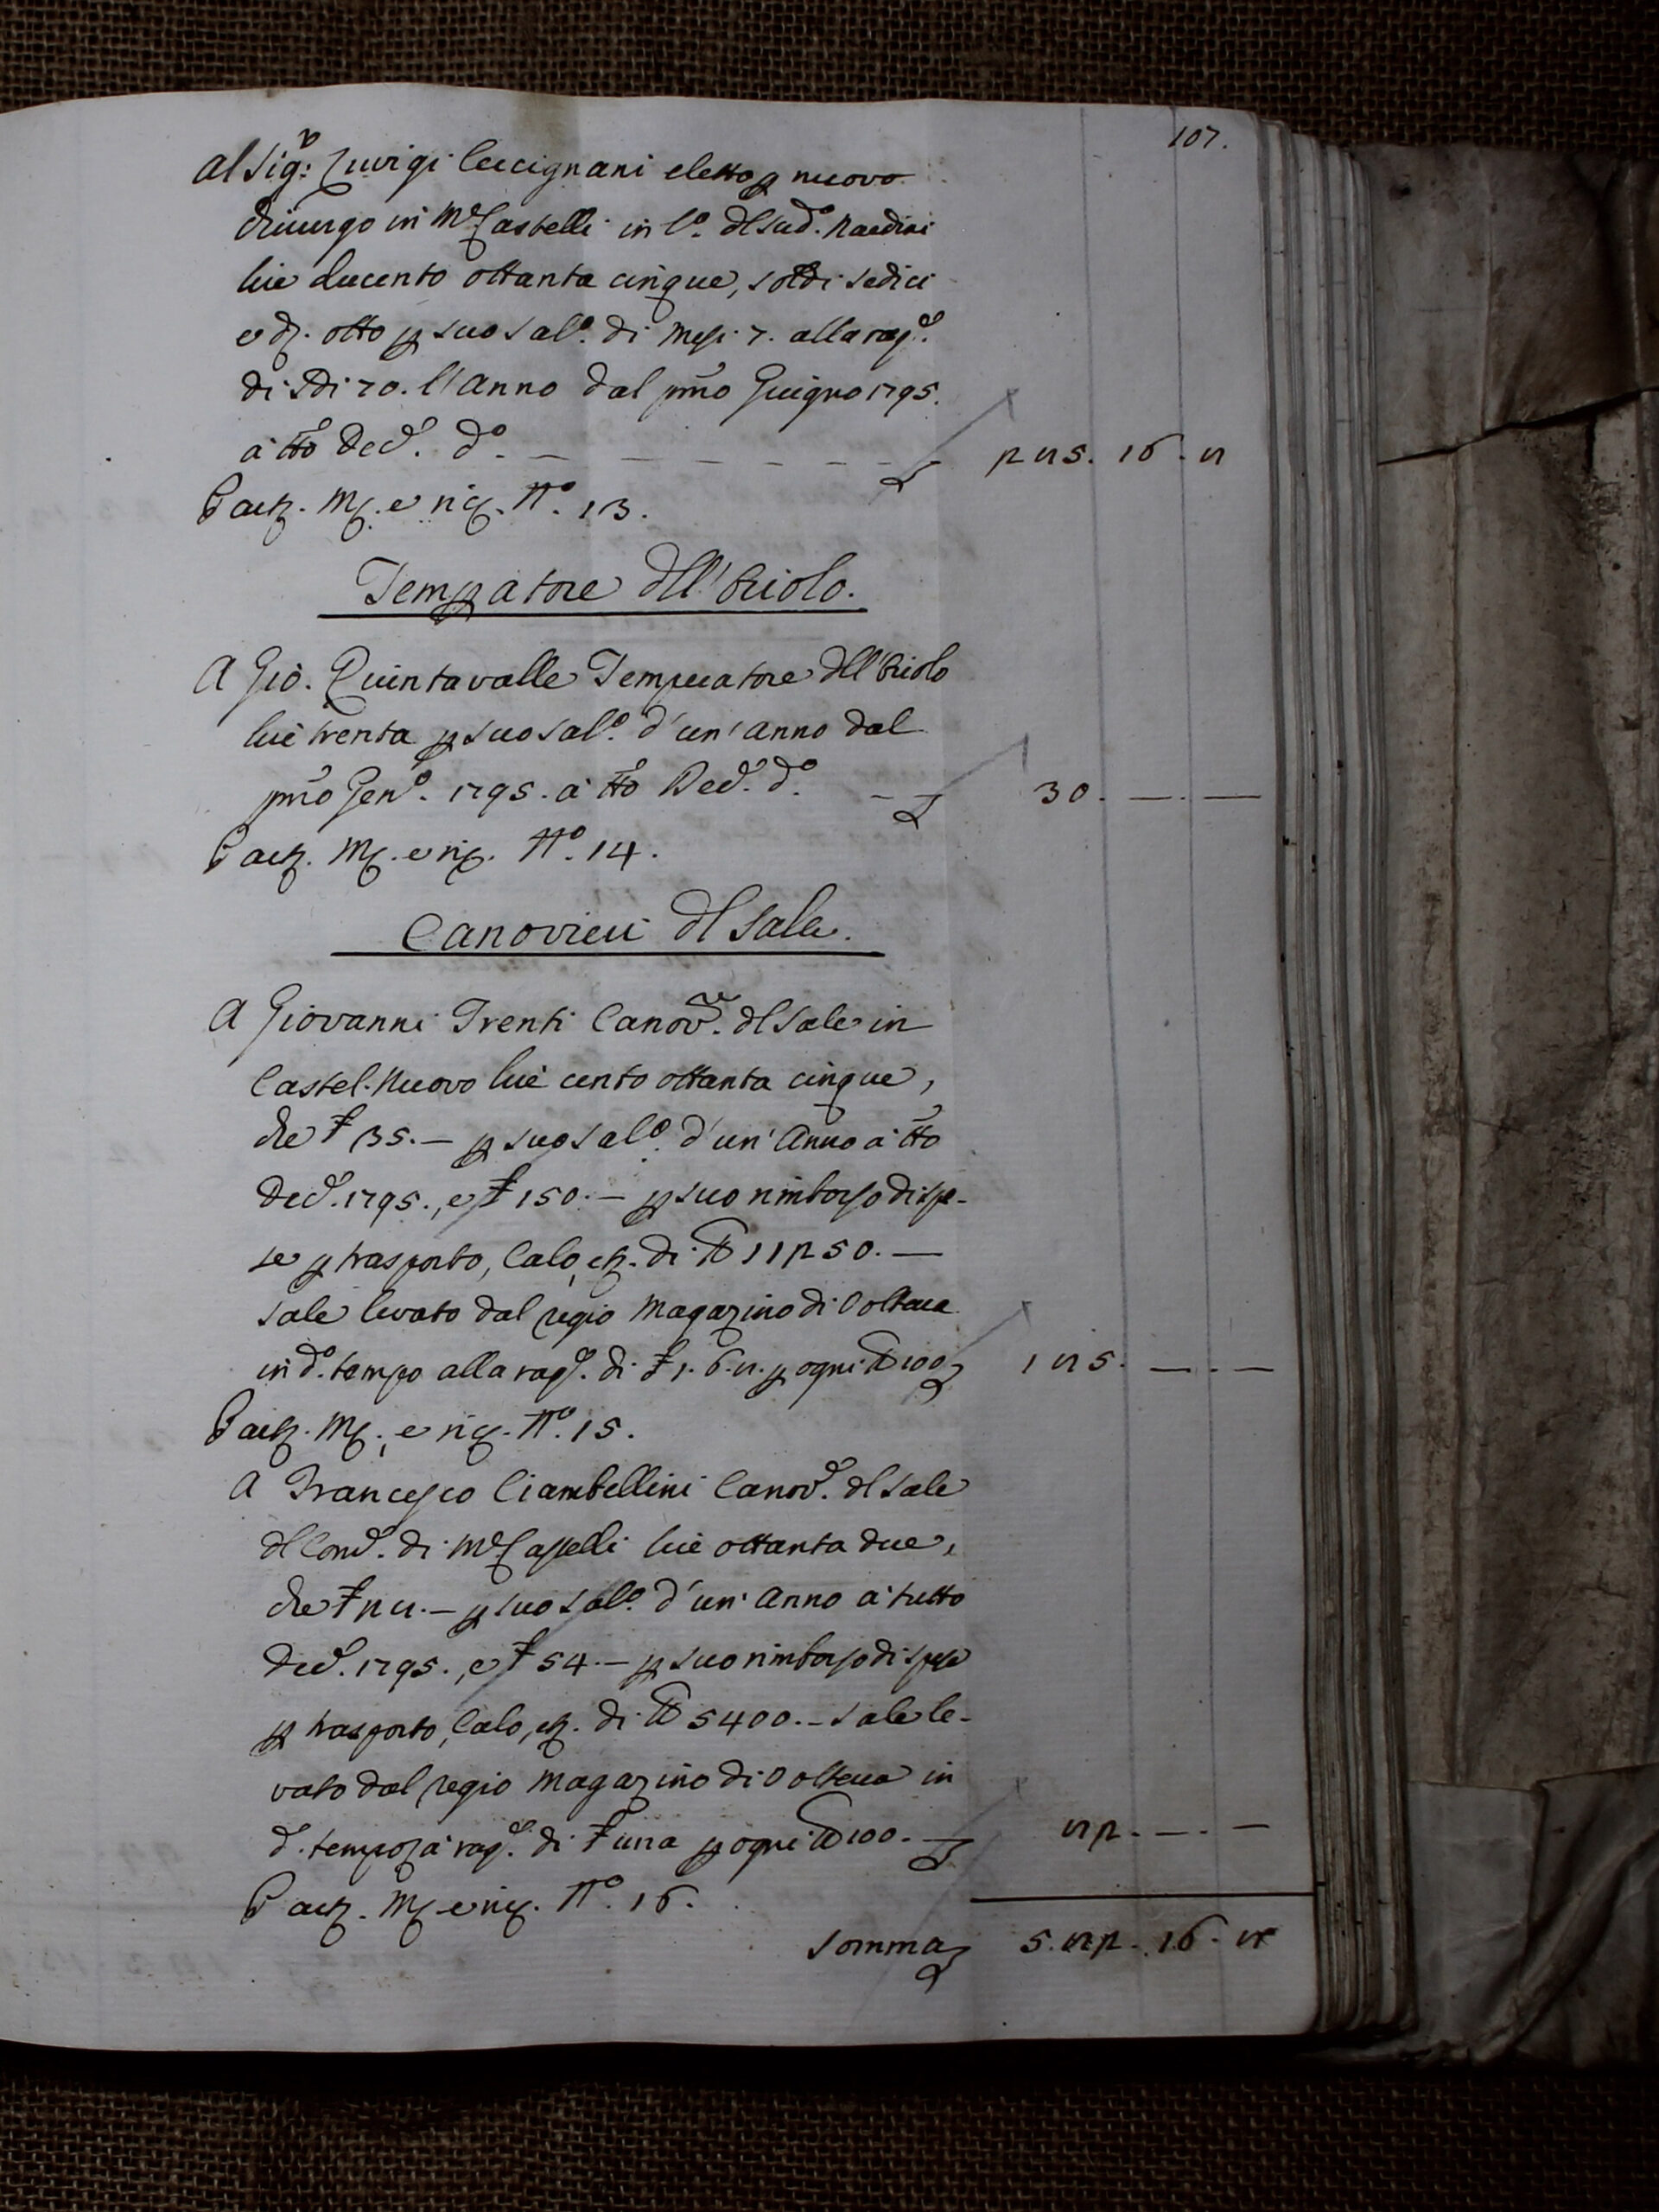 107.
Al Sig:r Luvigi Cecignani eletto p nuovo
Chiurgo in M.e Castelli in l.o dl sud.o Nardini
lire ducento ottanta cinque, soldi sedici
e d. otto p suo sal.o di mesi 7. alla rag.e
di Sdi 70. l'anno dal pmo Giugno 1795.
a tto Dec.e d.o — — — — — — 285. 16. 8
P acz. Mg. e rig. N.o 13.
Tempratore dll' Oriolo.
A Gio. Quintavalle Tempratore dll' Oriolo
lire trenta p suo sal.o d'un' anno dal
pmo Gen.o 1795. a tto Dec.e d.o — — 30. —. —
P acz. Mg. e rig. N.o 14.
Canovieri dl Sale.
A Giovanni Trenti Canov.re dl Sale in
Castel-Nuovo lire cento ottanta cinque,
che £ 35.— p suo sal.o d'un' Anno a tto
Dec.e 1795., e £ 150.— p suo rimborso di spe-
se p trasporto, Calo, ez. di lb 11250.—
Sale levato dal regio Magazino di
in d.o tempo alla rag.e di £ 1. 6. 8. p ogni lb 100 185. —. —
P acz. Mg. e rig. N.o 15.
A Francesco Ciambellini Canov.e dl Sale
dl Com.e di M.e Castelli lire ottanta due,
che £ 28.— p suo sal.o d'un' Anno a tutto
Dec.e 1795., e £ 54.— p suo rimborso di spese
p trasporto, Calo, ez. di lb 5400.— Sale le-
vato dal regio Magazino di in
d.o tempo a rag.e di £ una p ogni lb 100. — 82. —. —
P acz. Mg e rig. N.o 16.
Somma 582. 16. 8